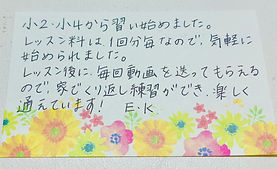 小2・小4から習い始めました。
レッスン料は1回分毎なので、気軽に
始められました。
レッスン後に、毎回動画を送ってもらえる
ので、家でくり返し練習ができ、楽しく
通えています! E.K